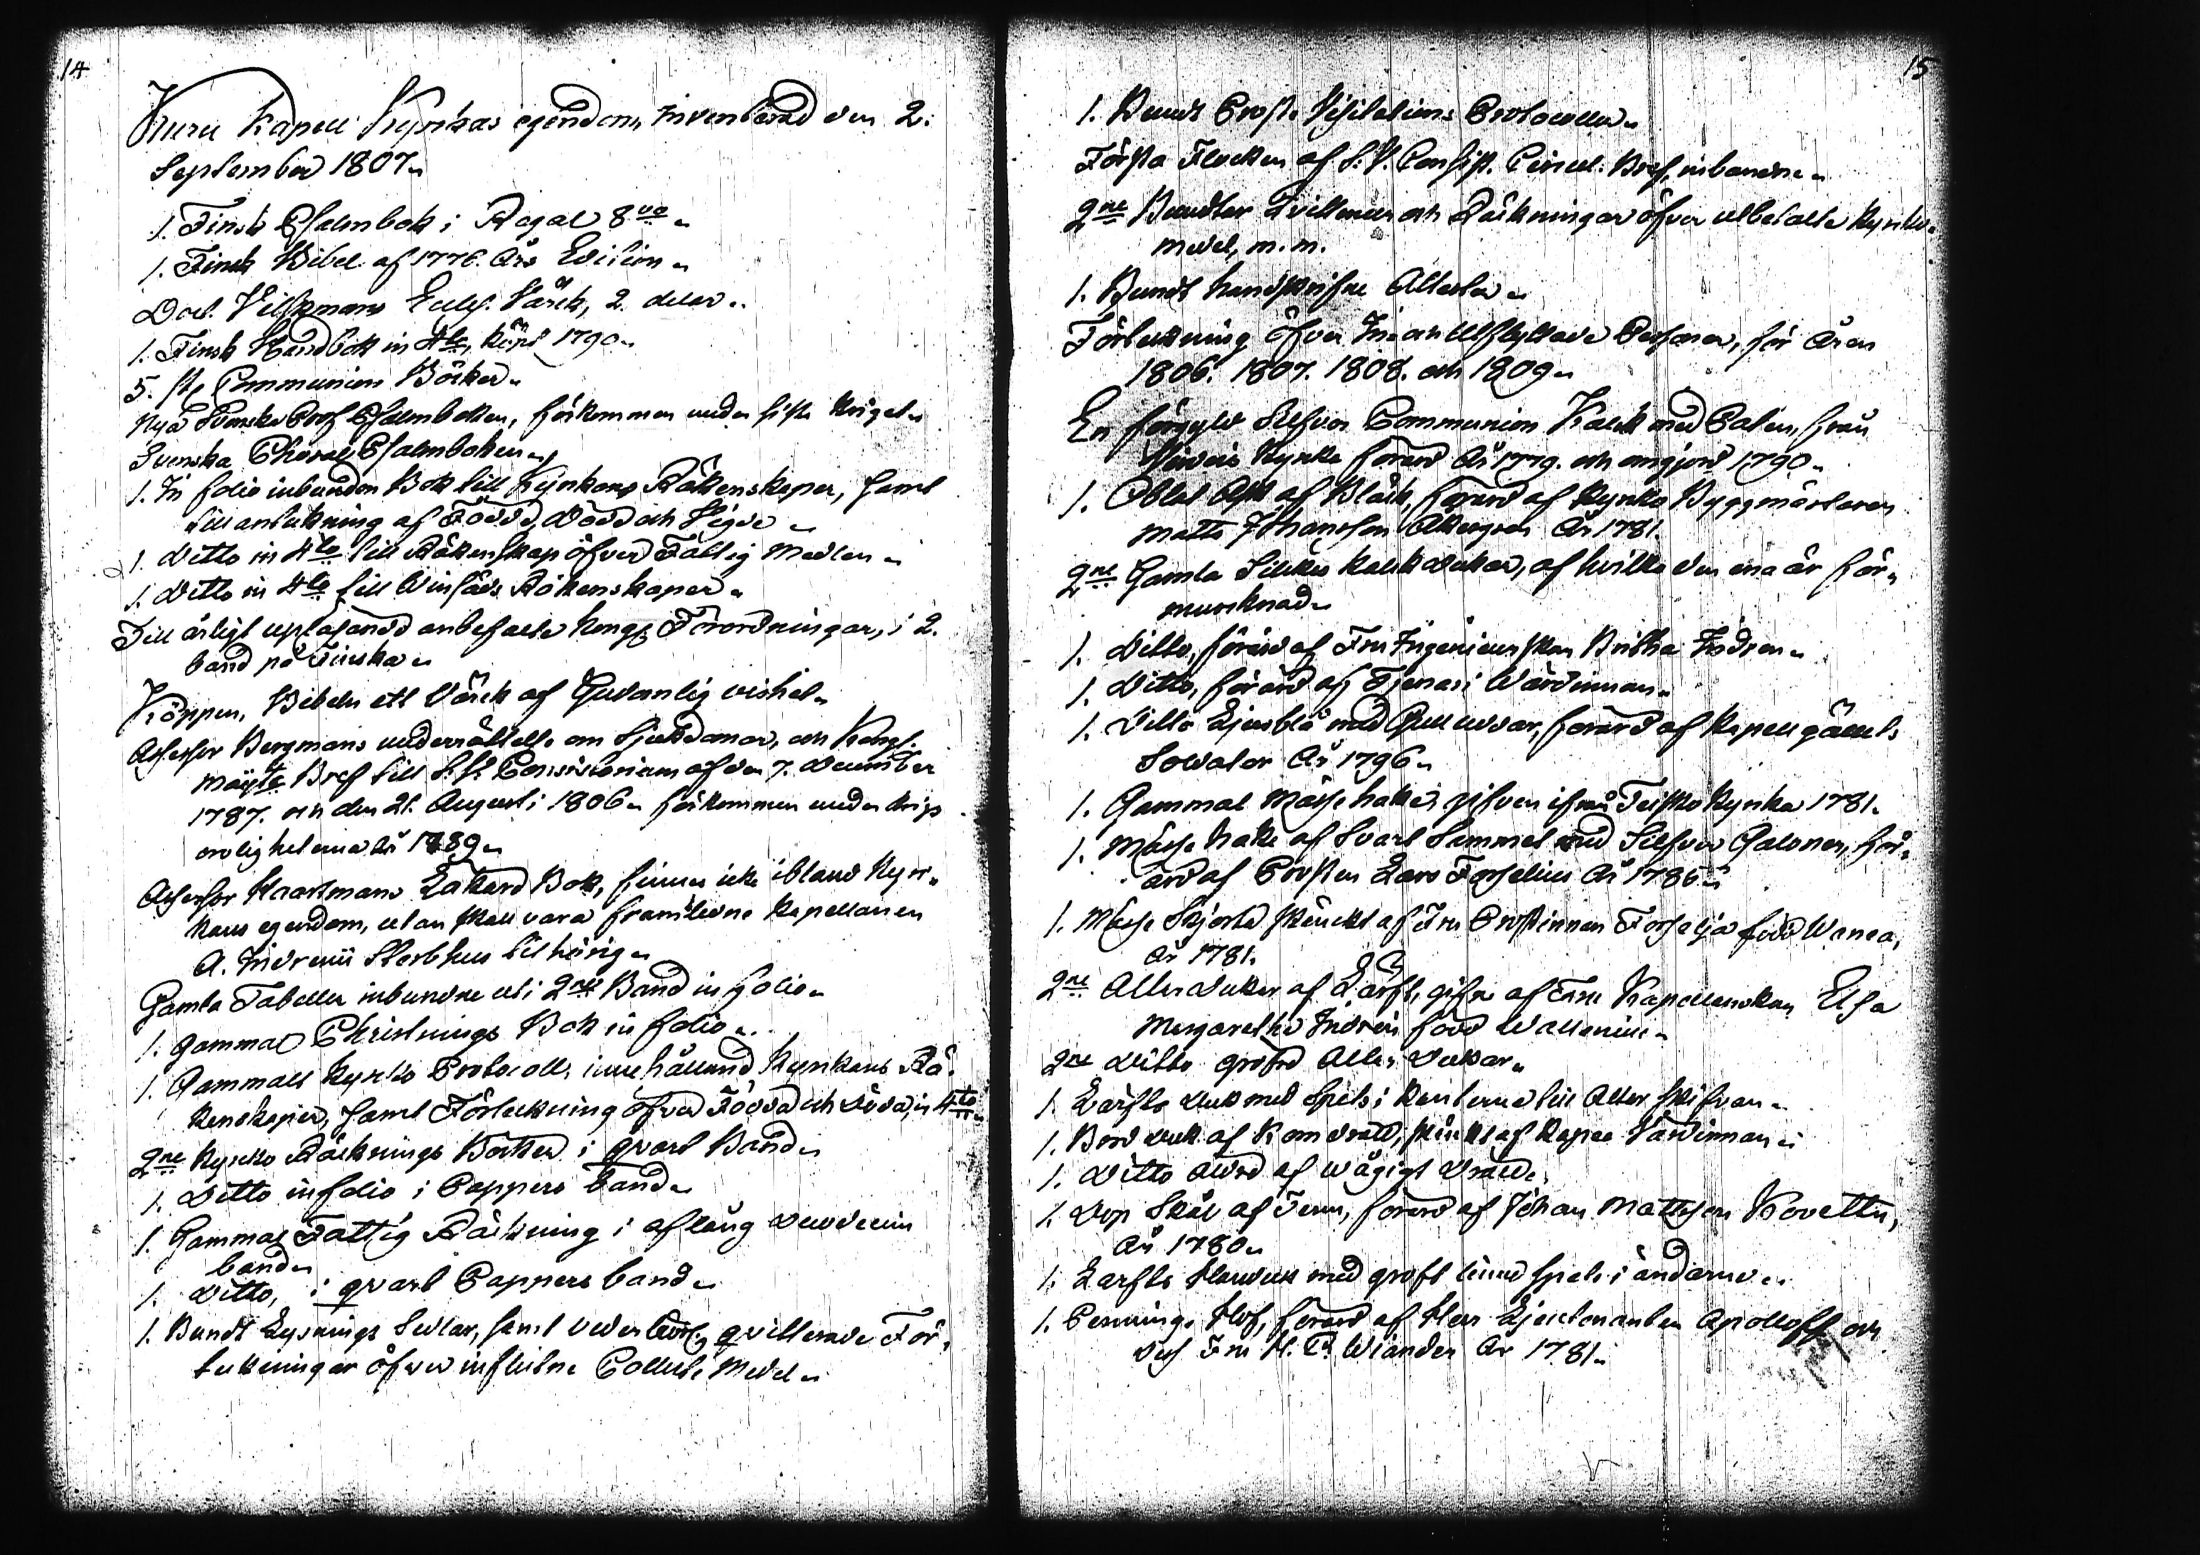 14
Kuru Kapell Kyrkas egendom inventerad den 2.
September 1807.
1. Finsk Psalmbok i Regal 8vo.
1. Finsk Bibel af 1776. Års Edition.
Doct. Veissmans Eccles. Värck, 2. delar.
1. Finsk Handbok in 4to, köpt 1790.
5. st. Communion Böcker.
Nya Svenska Prof Psalmboken, förkommen under sista kriget.
Svenska Choral Psalmboken.
1. In folio inbunden Bok till Kyrkans Räkenskaper, samt
till anteckning af Födde, Döde och Vigde.
1. Ditto in 4to till Räkenskap öfver Fattig Medlen.
1. Ditto in 4to till Vinsäds Räkenskaper.
Till årligt upläsande anbefalte kongl. Förordningar, i 2.
band på Finska.
Köppen, Bibeln ett Värck af Gudomlig vishet.
Assessor Bergmans underrättelse om Sjukdomar, och Kongl.
Majts Bref till S. S. Consistorium af den 7. December
1787. och den 21. Augusti 1806. förkommen under krigs
oroligheterna år 1789.
Assessor Haartmans Läkare Bok, finnes icke ibland Kyr-
kans egendom, utan skall vara framledne Kapellanen
A. Indrenii Sterbhus tilhörig.
Gamla Tabeller inbundne uti 2ne Band in folio.
1. gammal Christnings Bok in folio.
1. Gammalt Kyrko Protocoll, innehållande Kyrkans Rä-
kenskaper, samt Förteckning öfver Födda och Döda, in 4to.
2ne Kyrko Räcknings Böcker i qvart Band.
1. Ditto in folio i Pappers band.
1. Gammal Fattig Räckning i aflång duodecim
band.
1. Ditto, i qvart Pappers band.
1. Bundt Lysnings Sedlar, samt vederbörl. qvitterade För-
teckningar öfver influtne Collecte Medel.
15
1. Bundt Prosts Visitations Protocoller.
Första Flocken af S. V. Consist. Circul. Bref, inbundne.
2ne Bundter Qvittencer och Räckningar öfver utbetalte Kyrko-
medel, m. m.
1. Bundt handskrifne Attester.
Förteckning öfver In- och Utflyttade Personer, för Åren
1806. 1807. 1808. och 1809.
En förgyld Silfver Communion Kalck med Paten, från
Kyrka förärd År 1779. och omgjord 1790.
1. Oblat Ask af Bläck, förärd af Kyrko Byggmästaren
Matts Johansson Åkergren År 1781.
2ne Gamla Silkes Kalckdukar, af hvilka den ena är för-
murcknad.
1. Ditto, förärd af Fru Ingenieurskan Britha Indren.
1. Ditto, förärd af Tjenari Wärdinnan.
1. Ditto Ljusblå med Gull uddar, förärd af Kapell gällets
Soldater År 1796.
1. Gammal Mässe hake, gifven ifrån Teisko Kyrka 1781.
1. Mässe hake af Svart Sammet med Silfver Galoner, för-
ärd af Prosten Lars Forselius År 1786.
1. Mässe Skjorta skänckt af Fru Prostinnan Forselia född Wanaa,
År 1781.
2ne Altar dukar af Lärft, gifne af Fru Kapellanskan Elsa
Margaretha Indrén född Wallenius.
2ne Ditto gröfre Altar dukar.
1. Lärfts duk med Spets i kanterne till Altar skifvan.
1. Bord duk af Korndrall, skänckt af Kapee Värdinnan.
1. Ditto Ditto af wågigt Dräll.
1. Dop Skål af Tenn, förärd af Johan Mattsson Kovettu,
År 1780.
1. Lärfts Handuk med groft linne spets i ändarne.
1. Pennings Håf, förärd af Herr Lieutenanten Apolloff och
dess Fru H. C. Wiander År 1781.